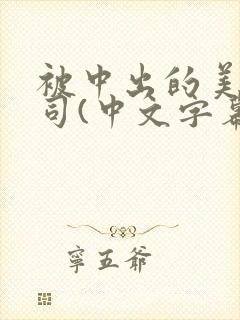 被中出的美
司(中文字幕
寧五爺